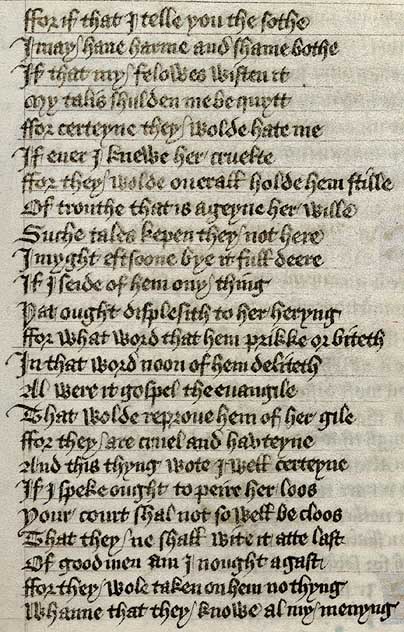 ffor if that I telle you the sothe
I may haue harme and shame bothe
If that my felowes wisten it
My talis shulden me be quytt
ffor certeyne they wolde hate me
If euer I knewe her cruelte
ffor they wolde ouerall holde hem stille
Of trouthe that is ageyne her wille
Suche tales kepen they not here
I myght eftsoone bye it full deere
If I seide of hem ony thing
Yat ought displesith to her heryng
ffor what word that hem prikke or biteth
In that word noon of hem deliteth
Al were it gospel the euangile
That wolde reproue hem of her gile
ffor they are cruel and hauteyne
And this thyng wote I well certeyne
If I speke ought to peire her loos
Your court shal not so well be cloos
That they ne shall wite it atte last
Of good men am I nought agast
ffor they wole taken on hem no thyng
Whanne that they knowe al my menyng